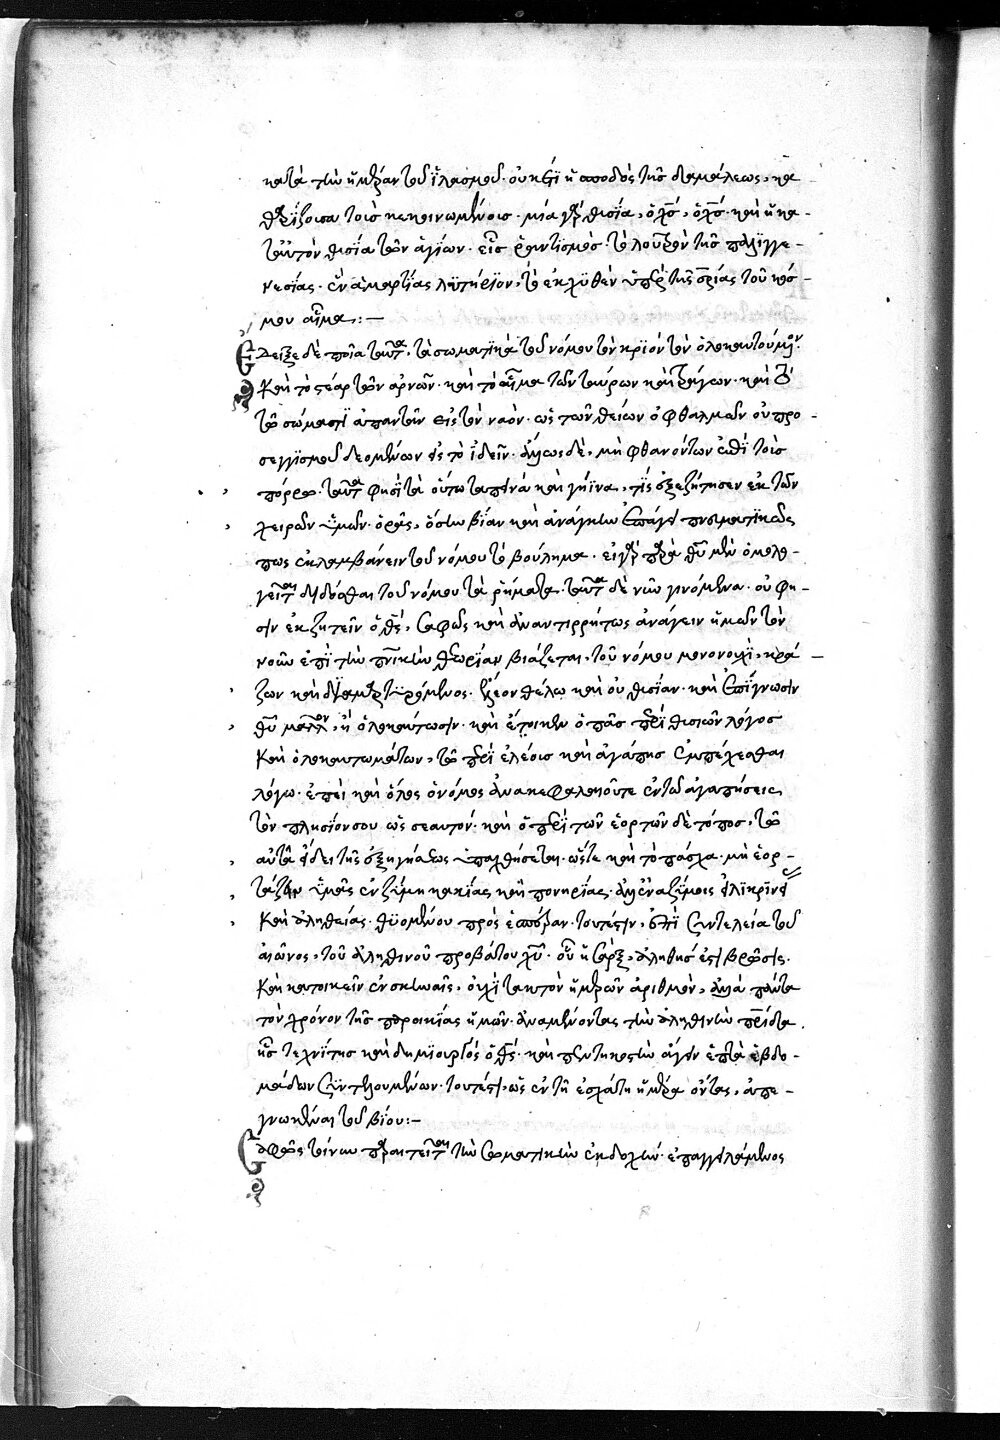 κατὰ τὴν ἡμέραν τοῦ ἱλασμοῦ· οὐκέτι ἡ σποδὸς τῆς δαμάλεως, κα
θαρίζουσα τοὺς κεκοινωμένους· μία γὰρ θυσία, ὁ χς, ὁ χς καὶ ἡ κα
τ' αὐτὸν θυσία τῶν ἁγίων· εἷς ῥαντισμὸς τὸ λουτρὸν τῆς παλιγγε
νεσίας· ἓν ἁμαρτίας λυτήριον, τὸ ἐκχυθὲν ὑπὲρ τῆς σρίας τοῦ κόσ
μου αἷμα:—
Ἔδειξε δὲ ποῖα ταῦτα, τὰ σωματικὰ τοῦ νόμου τὸν κριὸν τὸν ὁλοκαυτούμενον·
Καὶ τὸ στέαρ τῶν ἀρνῶν· καὶ τὸ αἷμα τῶν ταύρων καὶ τράγων· καὶ τὸ
τῷ σώματι ἀπαντᾶν εἰς τὸν ναόν· ὡς τῶν θείων ὀφθαλμῶν οὐ προ
σεγγισμοῦ δεομένων εἰς τὸ ἰδεῖν· ἄλλως δὲ, μὴ φθανόντων ἐπὶ τοὺς
πόρρω· ταῦτα φησὶ τὰ οὕτω ταπεινὰ καὶ γήϊνα, τίς ἐξεζήτησεν ἐκ τῶν
χειρῶν ὑμῶν· ὁρᾷς, ὅστω βίαν καὶ ἀνάγκην ἐπάγει πνευματικῶς
πως ἐκλαμβάνειν τοῦ νόμου τὸ βούλημα· εἰ γὰρ παρὰ θυ μὲν ὁμολο
γεῖται δίδοσθαι τοῦ νόμου τὰ ῥήματα· ταῦτα δὲ νῦν γινόμενα· οὔ φη
σιν ἐκζητεῖν ὁ θς, σαφῶς καὶ ἀναντιρρήτως ἀνάγειν ἡμῶν τὸν
νοῦν ἐπὶ τὴν πνικὴν θεωρίαν βιάζεται, τοῦ νόμου μονονουχὶ, κρά
ζων καὶ διαμαρτυρόμενος· ἔλεον θέλω καὶ οὐ θυσίαν· καὶ ἐπίγνωσιν
θυ μᾶλλον, ἢ ὁλοκαύτωσιν· καὶ ἔοικεν ὁ πᾶς περὶ θυσιῶν λόγος
Καὶ ὁλοκαυτωμάτων, τῷ περὶ ἐλέους καὶ ἀγάπης ἐμπεριέχεσθαι
λόγω· ἐπεὶ καὶ ὅλος ὁ νόμος ἀνακεφαλαιοῦται ἐν τῷ ἀγαπήσεις
τὸν πλησίον σου ὡς σεαυτόν· καὶ ὁ περὶ τῶν ἑορτῶν δὲ τόπος, τῷ
αὐτῷ εἴδει τῆς ἐξηγήσεως ὑπαχθήσεται· ὥστε καὶ τὸ πάσχα· μὴ ἑορ
τάζειν ὑμᾶς ἐν ζύμη κακίας καὶ πονηρίας· ἀλλ' ἐν ἀζύμοις εἰλικρινεί
Καὶ ἀληθείας· θυομένου πρὸς ἑσπέραν· τουτέστιν, ἐπὶ συντελεία τοῦ
αἰῶνος, τοῦ ἀληθινοῦ προβάτου χυ· οὗ ἡ σὰρξ, ἀληθής ἐστι βρῶσις·
Καὶ κατοικεῖν ἐν σκηναῖς, οὐχὶ τακτὸν ἡμερῶν ἀριθμὸν, ἀλλὰ πάντα
τὸν χρόνον τῆς παροικίας ἡμῶν· ἀναμένοντας τὴν ἀληθινὴν πρίδα·
ἧς τεχνίτης καὶ δημιουργὸς ὁ θς· καὶ πεντηκοστὴν ἄγειν ἑπτὰ ἑβδο
μάδων συντελουμένων· τουτέστιν, ὡς ἐν τῇ ἐσχάτη ἡμέρα ὄντας, ἀπε
γνωκέναι τοῦ βίου:—
Σαφῶς τοίνυν παραιτεῖται τὴν σωματικὴν ἐκδοχήν· ἐπαγγελλόμενος